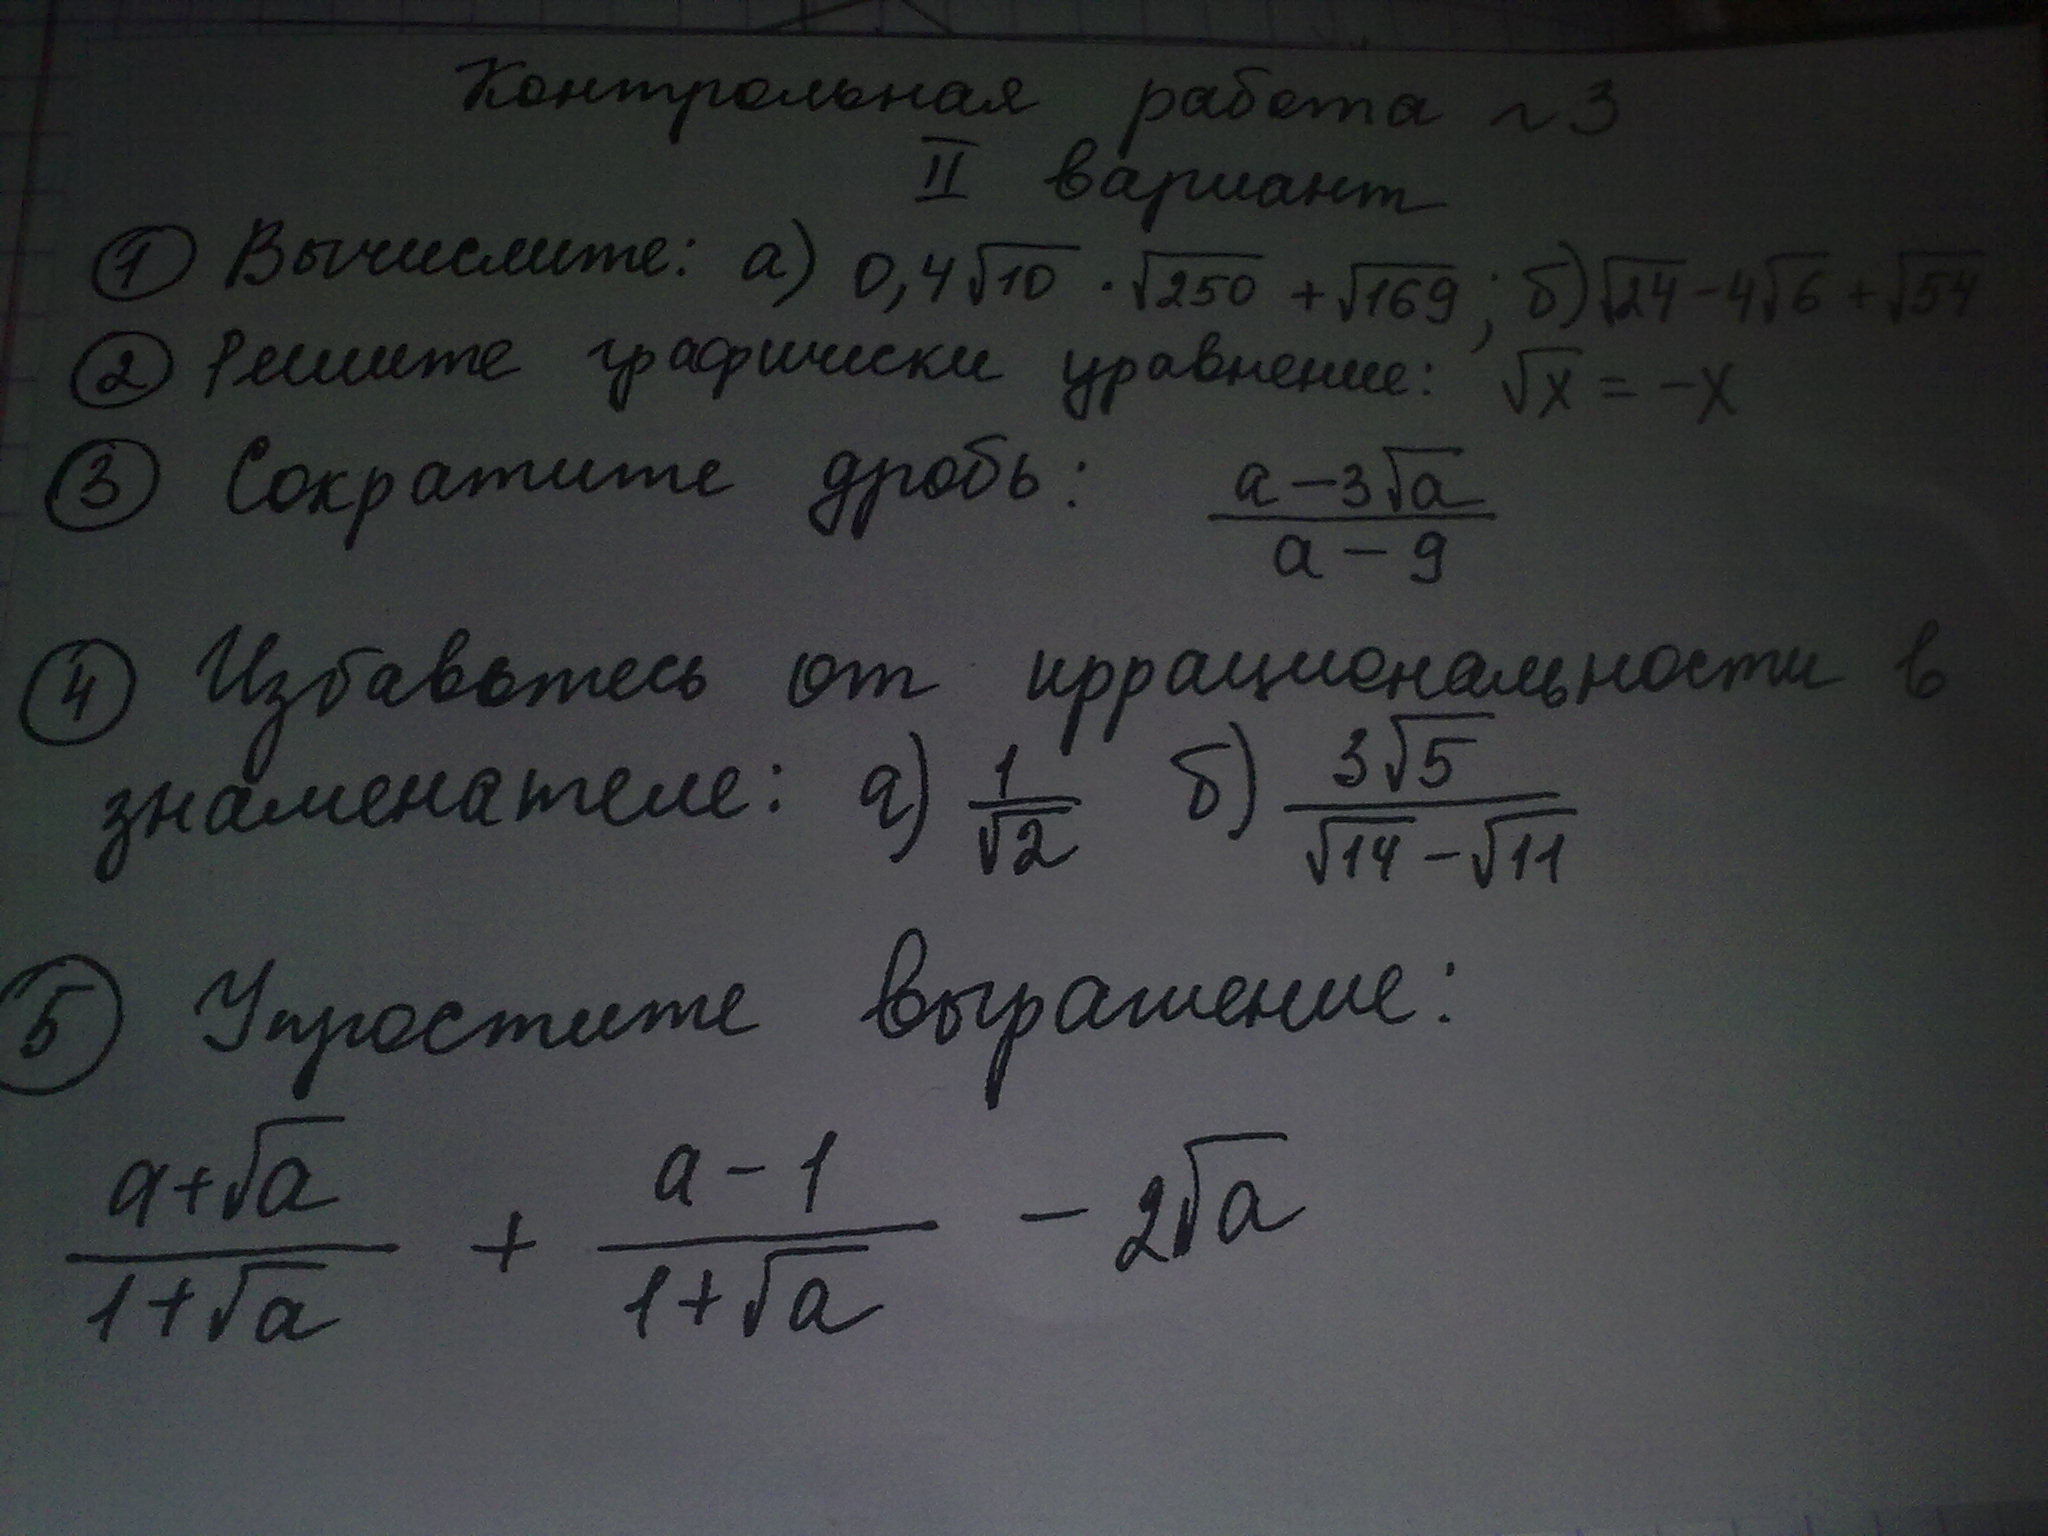 Контрольная работа ~3
II вариант
① Вычислите: а) 0,4√10 · √250 + √169; б) √24 - 4√6 + √54
② Решите графически уравнение: √x = -x
③ Сократите дробь: (a - 3√a)/(a - 9)
④ Избавьтесь от иррациональности в
знаменателе: а) 1/√2 б) 3√5/(√14 - √11)
⑤ Упростите выражение:
(a + √a)/(1 + √a) + (a - 1)/(1 + √a) - 2√a